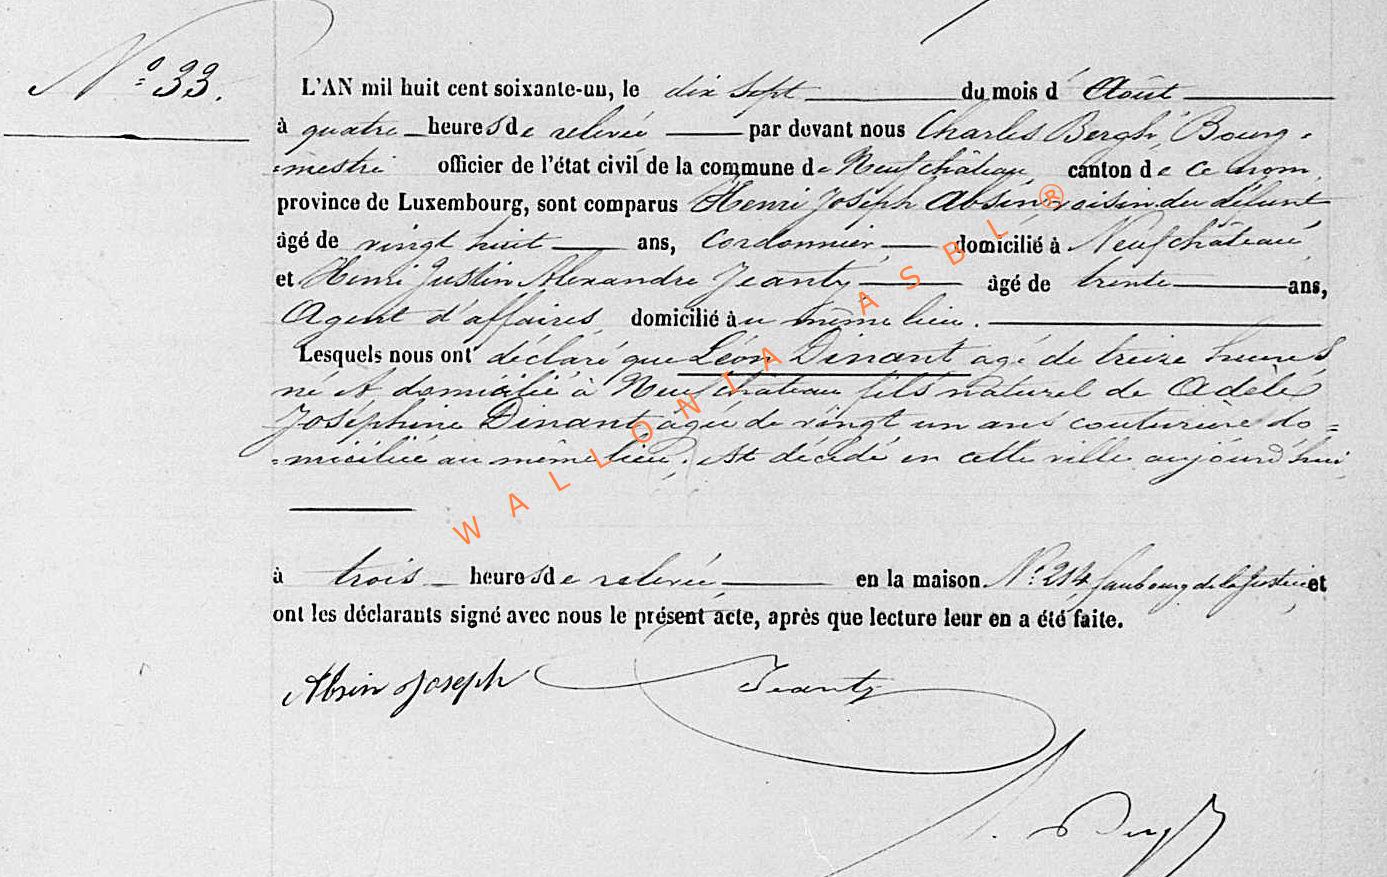 N° 33.
L'AN mil huit cent soixante-un, le dix sept du mois d'Août
à quatre heures de relevée par devant nous Charles Bergh, Bourg-
=mestre officier de l'état civil de la commune de Neufchâteau canton de ce nom,
province de Luxembourg, sont comparus Henri Joseph Absin, voisin du défunt
âgé de vingt huit ans, Cordonnier, domicilié à Neufchâteau
et Henri Justin Alexandre Jeanty âgé de trente ans,
Agent d'affaires, domicilié au même lieu.
Lesquels nous ont déclaré que Léon Dinant agé de treize heures
né et domicilié à Neufchateau fils naturel de Adèle
Joséphine Dinant, agée de vingt un ans couturière do=
=miciliée au même lieu. Est décédé en cette ville aujourd'hui
à trois heures de relevée en la maison N° 214, faubourg de la Justice et
ont les déclarants signé avec nous le présent acte, après que lecture leur en a été faite.
Absin Joseph Jeanty
Bergh
WALLONIA ASBL ®